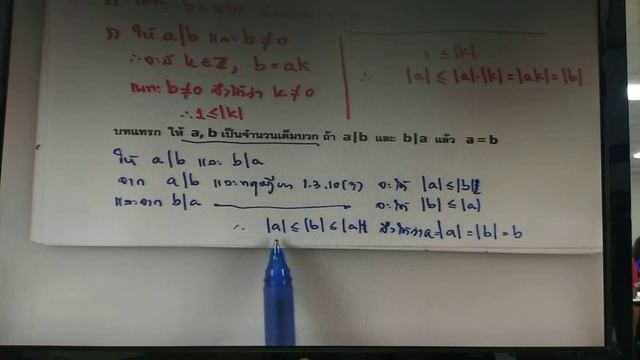 3) ให้ a|b และ b≠0
∴ จะมี k∈ℤ, b = ak
เพราะ b≠0 ทำให้ k≠0
∴ 1≤|k|
1 ≤ |k|
∴ |a| ≤ |a|·|k| = |ak| = |b|
บทแทรก ให้ a, b เป็นจำนวนเต็มบวก ถ้า a|b และ b|a แล้ว a = b
ให้ a|b และ b|a
จาก a|b และทฤษฎีบท 1.3.10(3) จะได้ |a| ≤ |b|
และจาก b|a จะได้ |b| ≤ |a|
∴ |a| ≤ |b| ≤ |a| a=|a| = |b| = b